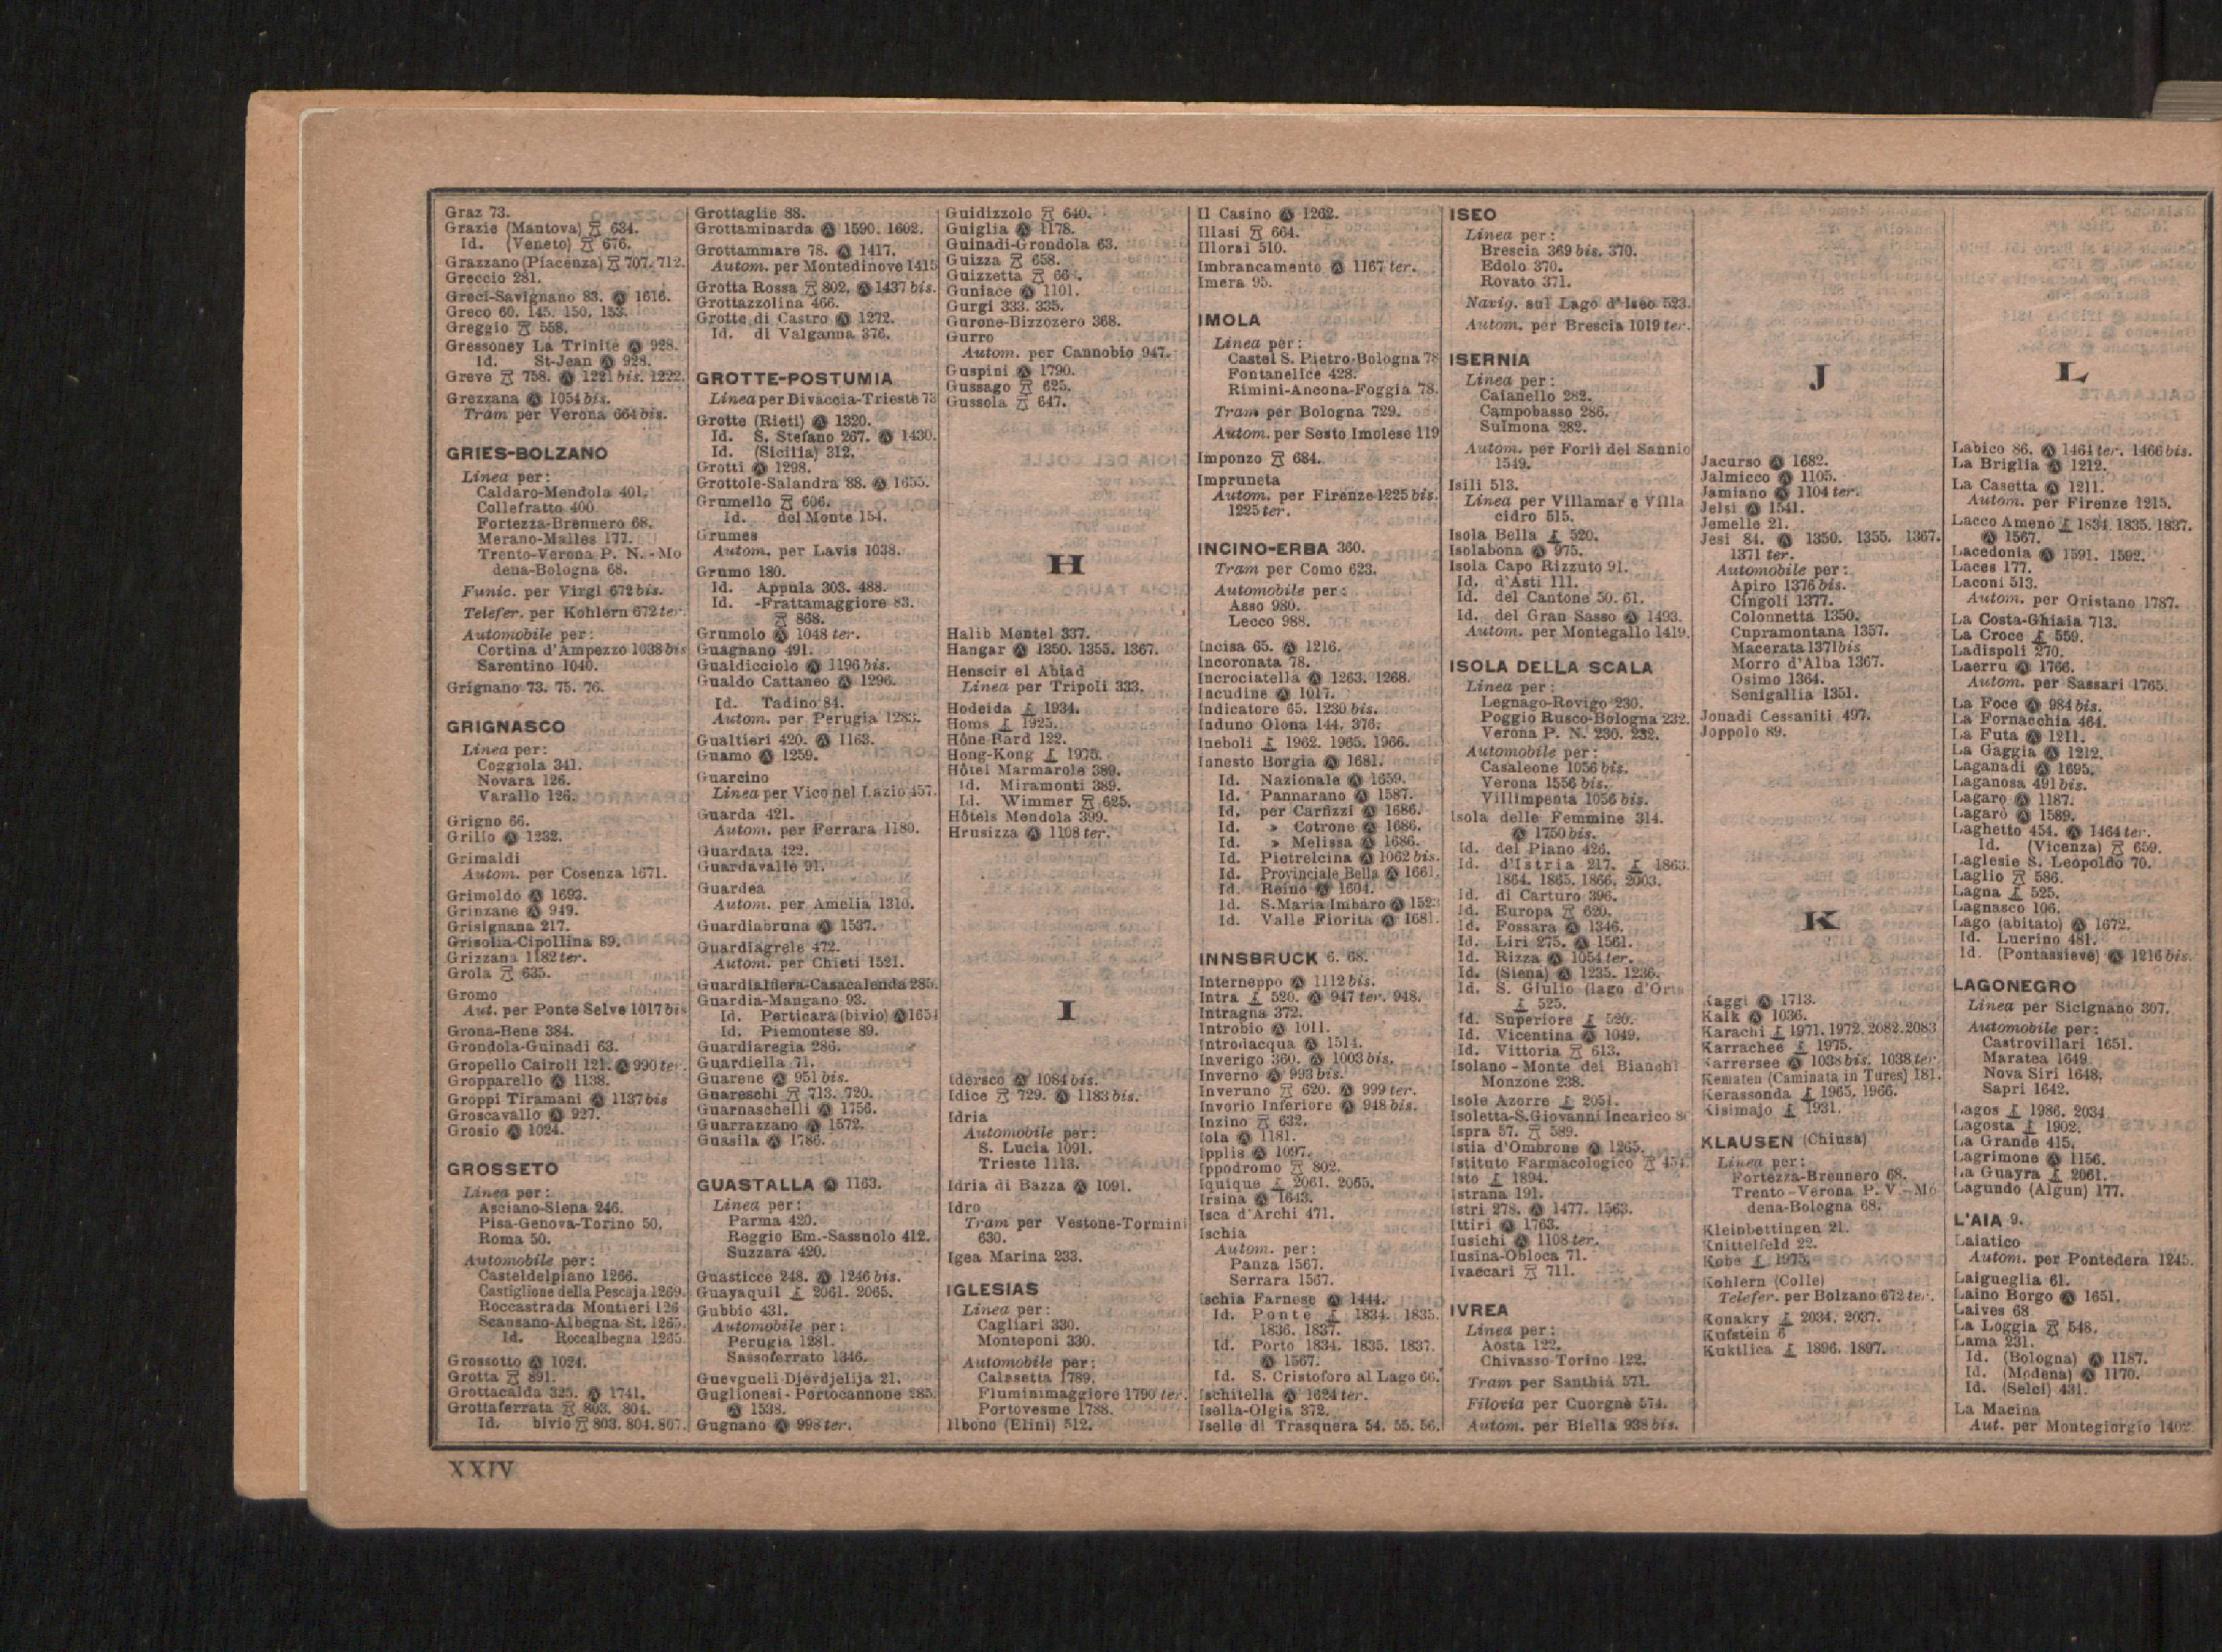 Graz 73.
Grazie (Mantova) 634.
Id. (Veneto) 676.
Grazzano (Piacenza) 707. 712.
Greccio 281.
Greci-Savignano 83. Ⓐ 1616.
Greco 60. 145. 150. 153.
Greggio 558.
Gressoney La Trinité Ⓐ 928.
Id. St-Jean Ⓐ 928.
Greve 758. Ⓐ 1221 bis. 1222.
Grezzana Ⓐ 1054 bis.
Tram per Verona 664 bis.
GRIES-BOLZANO
Linea per:
Caldaro-Mendola 401.
Collefratto 400
Fortezza-Brennero 68.
Merano-Malles 177.
Trento-Verona P. N. - Mo
dena-Bologna 68.
Funic. per Virgl 672 bis.
Telefer. per Kohlern 672 ter
Automobile per:
Cortina d'Ampezzo 1038 bis
Sarentino 1040.
Grignano 73. 75. 76.
GRIGNASCO
Linea per:
Coggiola 341.
Novara 126.
Varallo 126.
Grigno 66.
Grillo Ⓐ 1232.
Grimaldi
Autom. per Cosenza 1671.
Grimoldo Ⓐ 1693.
Grinzane Ⓐ 949.
Grisignana 217.
Grisolia-Cipollina 89.
Grizzana 1182 ter.
Grola 635.
Gromo
Aut. per Ponte Selve 1017 bis
Grona-Bene 384.
Grondola-Guinadi 63.
Gropello Cairoli 121. Ⓐ 990 ter.
Gropparello Ⓐ 1138.
Groppi Tiramani Ⓐ 1137 bis
Groscavallo Ⓐ 927.
Grosio Ⓐ 1024.
GROSSETO
Linea per:
Asciano-Siena 246.
Pisa-Genova-Torino 50.
Roma 50.
Automobile per:
Casteldelpiano 1266.
Castiglione della Pescaja 1269.
Roccastrada Montieri 126
Scansano-Albegna St. 1265.
Id. Roccalbegna 1265.
Grossotto Ⓐ 1024.
Grotta 891.
Grottacalda 325. Ⓐ 1741.
Grottaferrata 803. 804.
Id. bivio 803. 804. 807.
Grottaglie 88.
Grottaminarda Ⓐ 1590. 1602.
Grottammare 78. Ⓐ 1417.
Autom. per Montedinove 1415
Grotta Rossa 802. Ⓐ 1437 bis.
Grottazzolina 466.
Grotte di Castro Ⓐ 1272.
Id. di Valganna 376.
GROTTE-POSTUMIA
Linea per Divaccia-Trieste 73
Grotte (Rieti) Ⓐ 1320.
Id. S. Stefano 267. Ⓐ 1430.
Id. (Sicilia) 312.
Grotti Ⓐ 1298.
Grottole-Salandra 88. Ⓐ 1655.
Grumello 606.
Id. del Monte 154.
Grumes
Autom. per Lavis 1038.
Grumo 180.
Id. Appula 303. 488.
Id. -Frattamaggiore 83.
868.
Grumolo Ⓐ 1048 ter.
Guagnano 491.
Gualdicciolo Ⓐ 1196 bis.
Gualdo Cattaneo Ⓐ 1296.
Id. Tadino 84.
Autom. per Perugia 1283.
Gualtieri 420. Ⓐ 1163.
Guamo Ⓐ 1259.
Guarcino
Linea per Vico nel Lazio 457.
Guarda 421.
Autom. per Ferrara 1180.
Guardata 422.
Guardavalle 91.
Guardea
Autom. per Amelia 1310.
Guardiabruna Ⓐ 1537.
Guardiagrele 472.
Autom. per Chieti 1521.
Guardialfiera-Casacalenda 285.
Guardia-Mangano 93.
Id. Perticara (bivio) Ⓐ 1654
Id. Piemontese 89.
Guardiaregia 286.
Guardiella 71.
Guarene Ⓐ 951 bis.
Guareschi 713. 720.
Guarnaschelli Ⓐ 1756.
Guarrazzano Ⓐ 1572.
Guasila Ⓐ 1786.
GUASTALLA Ⓐ 1163.
Linea per:
Parma 420.
Reggio Em.-Sassuolo 412.
Suzzara 420.
Guasticce 248. Ⓐ 1246 bis.
Guayaquil 2061. 2065.
Gubbio 431.
Automobile per:
Perugia 1281.
Sassoferrato 1346.
Guevgueli Djevdjelija 21.
Guglionesi - Portocannone 285.
Ⓐ 1538.
Gugnano Ⓐ 998 ter.
Guidizzolo 640.
Guiglia Ⓐ 1178.
Guinadi-Grondola 63.
Guizza 658.
Guizzetta
Guniace Ⓐ 1101.
Gurgi 333. 335.
Gurone-Bizzozero 368.
Gurro
Autom. per Cannobio 947.
Guspini Ⓐ 1790.
Gussago 625.
Gussola 647.
H
Halib Mentel 337.
Hangar Ⓐ 1350. 1355. 1367.
Henscir el Abiad
Linea per Tripoli 333.
Hodeida 1934.
Homs 1925.
Hône-Bard 122.
Hong-Kong 1975.
Hôtel Marmarole 389.
Id. Miramonti 389.
Id. Wimmer 625.
Hôtels Mendola 399.
Hrusizza Ⓐ 1108 ter.
I
Idersco Ⓐ 1084 bis.
Idice 729. Ⓐ 1183 bis.
Idria
Automobile per:
S. Lucia 1091.
Trieste 1113.
Idria di Bazza Ⓐ 1091.
Idro
Tram per Vestone-Tormini
630.
Igea Marina 233.
IGLESIAS
Linea per:
Cagliari 330.
Monteponi 330.
Automobile per:
Calasetta 1789.
Fluminimaggiore 1790 ter.
Portovesme 1788.
Ilbono (Elini) 512.
Il Casino Ⓐ 1262.
Illasi 664.
Illorai 510.
Imbrancamento Ⓐ 1167 ter.
Imera 95.
IMOLA
Linea per:
Castel S. Pietro-Bologna 78
Fontanelice 428.
Rimini-Ancona-Foggia 78.
Tram per Bologna 729.
Autom. per Sesto Imolese 119
Imponzo 684.
Impruneta
Autom. per Firenze 1225 bis.
1225 ter.
INCINO-ERBA 360.
Tram per Como 623.
Automobile per:
Asso 980.
Lecco 988.
Incisa 65. Ⓐ 1216.
Incoronata 78.
Incrociatella Ⓐ 1263. 1268.
Incudine Ⓐ 1017.
Indicatore 65. 1230 bis.
Induno Olona 144. 376.
Ineboli 1962. 1965. 1966.
Innesto Borgia Ⓐ 1681.
Id. Nazionale Ⓐ 1659.
Id. Pannarano Ⓐ 1587.
Id. per Carfizzi Ⓐ 1686.
Id. » Cotrone Ⓐ 1686.
Id. » Melissa Ⓐ 1686.
Id. Pietrelcina Ⓐ 1062 bis.
Id. Provinciale Bella Ⓐ 1661.
Id. Reino Ⓐ 1604.
Id. S. Maria Imbaro Ⓐ 152
Id. Valle Fiorita Ⓐ 1681.
INNSBRUCK 6. 68.
Interneppo Ⓐ 1112 bis.
Intra 520. Ⓐ 947 ter. 948.
Intragna 372.
Introbio Ⓐ 1011.
Introdacqua Ⓐ 1514.
Inverigo 360. Ⓐ 1003 bis.
Inverno Ⓐ 993 bis.
Inveruno 620. Ⓐ 999 ter.
Invorio Inferiore Ⓐ 948 bis.
Inzino 632.
Iola Ⓐ 1181.
Ipplis Ⓐ 1097.
Ippodromo 802.
Iquique 2061. 2065.
Irsina Ⓐ 1643.
Isca d'Archi 471.
Ischia
Autom. per:
Panza 1567.
Serrara 1567.
Ischia Farnese Ⓐ 1444.
Id. Ponte 1834. 1835.
1836. 1837.
Id. Porto 1834. 1835. 1837.
Ⓐ 1567.
Id. S. Cristoforo al Lago 66.
Ischitella Ⓐ 1624 ter.
Isella-Olgia 372.
Iselle di Trasquera 54. 55. 56.
ISEO
Linea per:
Brescia 369 bis. 370.
Edolo 370.
Rovato 371.
Navig. sul Lago d'Iseo 523.
Autom. per Brescia 1019 ter.
ISERNIA
Linea per:
Caianello 282.
Campobasso 286.
Sulmona 282.
Autom. per Forlì del Sannio
1549.
Isili 513.
Linea per Villamar e Villa
cidro 515.
Isola Bella 520.
Isolabona Ⓐ 975.
Isola Capo Rizzuto 91.
Id. d'Asti 111.
Id. del Cantone 50. 61.
Id. del Gran Sasso Ⓐ 1493.
Autom. per Montegallo 1419.
ISOLA DELLA SCALA
Linea per:
Legnago-Rovigo 230.
Poggio Rusco-Bologna 232.
Verona P. N. 230. 232.
Automobile per:
Casaleone 1056 bis.
Verona 1556 bis.
Villimpenta 1056 bis.
Isola delle Femmine 314.
Ⓐ 1750 bis.
Id. del Piano 426.
Id. d'Istria 217. 1863.
1864. 1865. 1866. 2003.
Id. di Carturo 396.
Id. Europa 620.
Id. Fossara Ⓐ 1346.
Id. Liri 275. Ⓐ 1561.
Id. Rizza Ⓐ 1054 ter.
Id. (Siena) Ⓐ 1235. 1236.
Id. S. Giulio (lago d'Orta
525.
Id. Superiore 520.
Id. Vicentina Ⓐ 1049.
Id. Vittoria 613.
Isolano - Monte dei Bianchi
Monzone 238.
Isole Azorre 2051.
Isoletta-S. Giovanni Incarico
Ispra 57. 589.
Istia d'Ombrone Ⓐ 1265.
Istituto Farmacologico
Isto 1894.
Istrana 191.
Istri 278. Ⓐ 1477. 1563.
Ittiri Ⓐ 1763.
Iusichi Ⓐ 1108 ter.
Iusina-Obloca 71.
Ivaccari 711.
IVREA
Linea per:
Aosta 122.
Chivasso-Torino 122.
Tram per Santhià 571.
Filovia per Cuorgnè 574.
Autom. per Biella 938 bis.
J
Jacurso Ⓐ 1682.
Jalmicco Ⓐ 1105.
Jamiano Ⓐ 1104 ter.
Jelsi Ⓐ 1541.
Jemelle 21.
Jesi 84. Ⓐ 1350. 1355. 1367.
1371 ter.
Automobile per:
Apiro 1376 bis.
Cingoli 1377.
Colonnetta 1350.
Cupramontana 1357.
Macerata 1371 bis
Morro d'Alba 1367.
Osimo 1364.
Senigallia 1351.
Jonadi Cessaniti 497.
Joppolo 89.
K
Kaggi Ⓐ 1713.
Kalk Ⓐ 1036.
Karachi 1971. 1972. 2082. 2083
Karrachee 1975.
Karrersee Ⓐ 1038 bis. 1038 ter.
Kematen (Caminata in Tures) 181.
Kerassonda 1965. 1966.
Kisimajo 1931.
KLAUSEN (Chiusa)
Linea per:
Fortezza-Brennero 68.
Trento-Verona P. V.-Mo
dena-Bologna 68.
Kleinbettingen 21.
Knittelfeld 22.
Kobe 1975.
Kohlern (Colle)
Telefer. per Bolzano 672 ter.
Konakry 2034. 2037.
Kufstein 6
Kuktlica 1896. 1897.
L
Labico 86. Ⓐ 1464 ter. 1466 bis.
La Briglia Ⓐ 1212.
La Casetta Ⓐ 1211.
Autom. per Firenze 1215.
Lacco Ameno 1834. 1835. 1837.
Ⓐ 1567.
Lacedonia Ⓐ 1591. 1592.
Laces 177.
Laconi 513.
Autom. per Oristano 1787.
La Costa-Ghiaia 713.
La Croce 559.
Ladispoli 270.
Laerru Ⓐ 1766.
Autom. per Sassari 1765.
La Foce Ⓐ 984 bis.
La Fornacchia 464.
La Futa Ⓐ 1211.
La Gaggia Ⓐ 1212.
Laganadi Ⓐ 1695.
Laganosa 491 bis.
Lagaro Ⓐ 1187.
Lagarò Ⓐ 1589.
Laghetto 454. Ⓐ 1464 ter.
Id. (Vicenza) 659.
Laglesie S. Leopoldo 70.
Laglio 586.
Lagna 525.
Lagnasco 106.
Lago (abitato) Ⓐ 1672.
Id. Lucrino 481.
Id. (Pontassieve) Ⓐ 1216 bis.
LAGONEGRO
Linea per Sicignano 307.
Automobile per:
Castrovillari 1651.
Maratea 1649.
Nova Siri 1648.
Sapri 1642.
Lagos 1986. 2034.
Lagosta 1902.
La Grande 415.
Lagrimone Ⓐ 1156.
La Guayra 2061.
Lagundo (Algun) 177.
L'AIA 9.
Laiatico
Autom. per Pontedera 1245.
Laigueglia 61.
Laino Borgo Ⓐ 1651.
Laives 68
La Loggia 548.
Lama 231.
Id. (Bologna) Ⓐ 1187.
Id. (Modena) Ⓐ 1170.
Id. (Selci) 431.
La Macina
Aut. per Montegiorgio 1402
XXIV